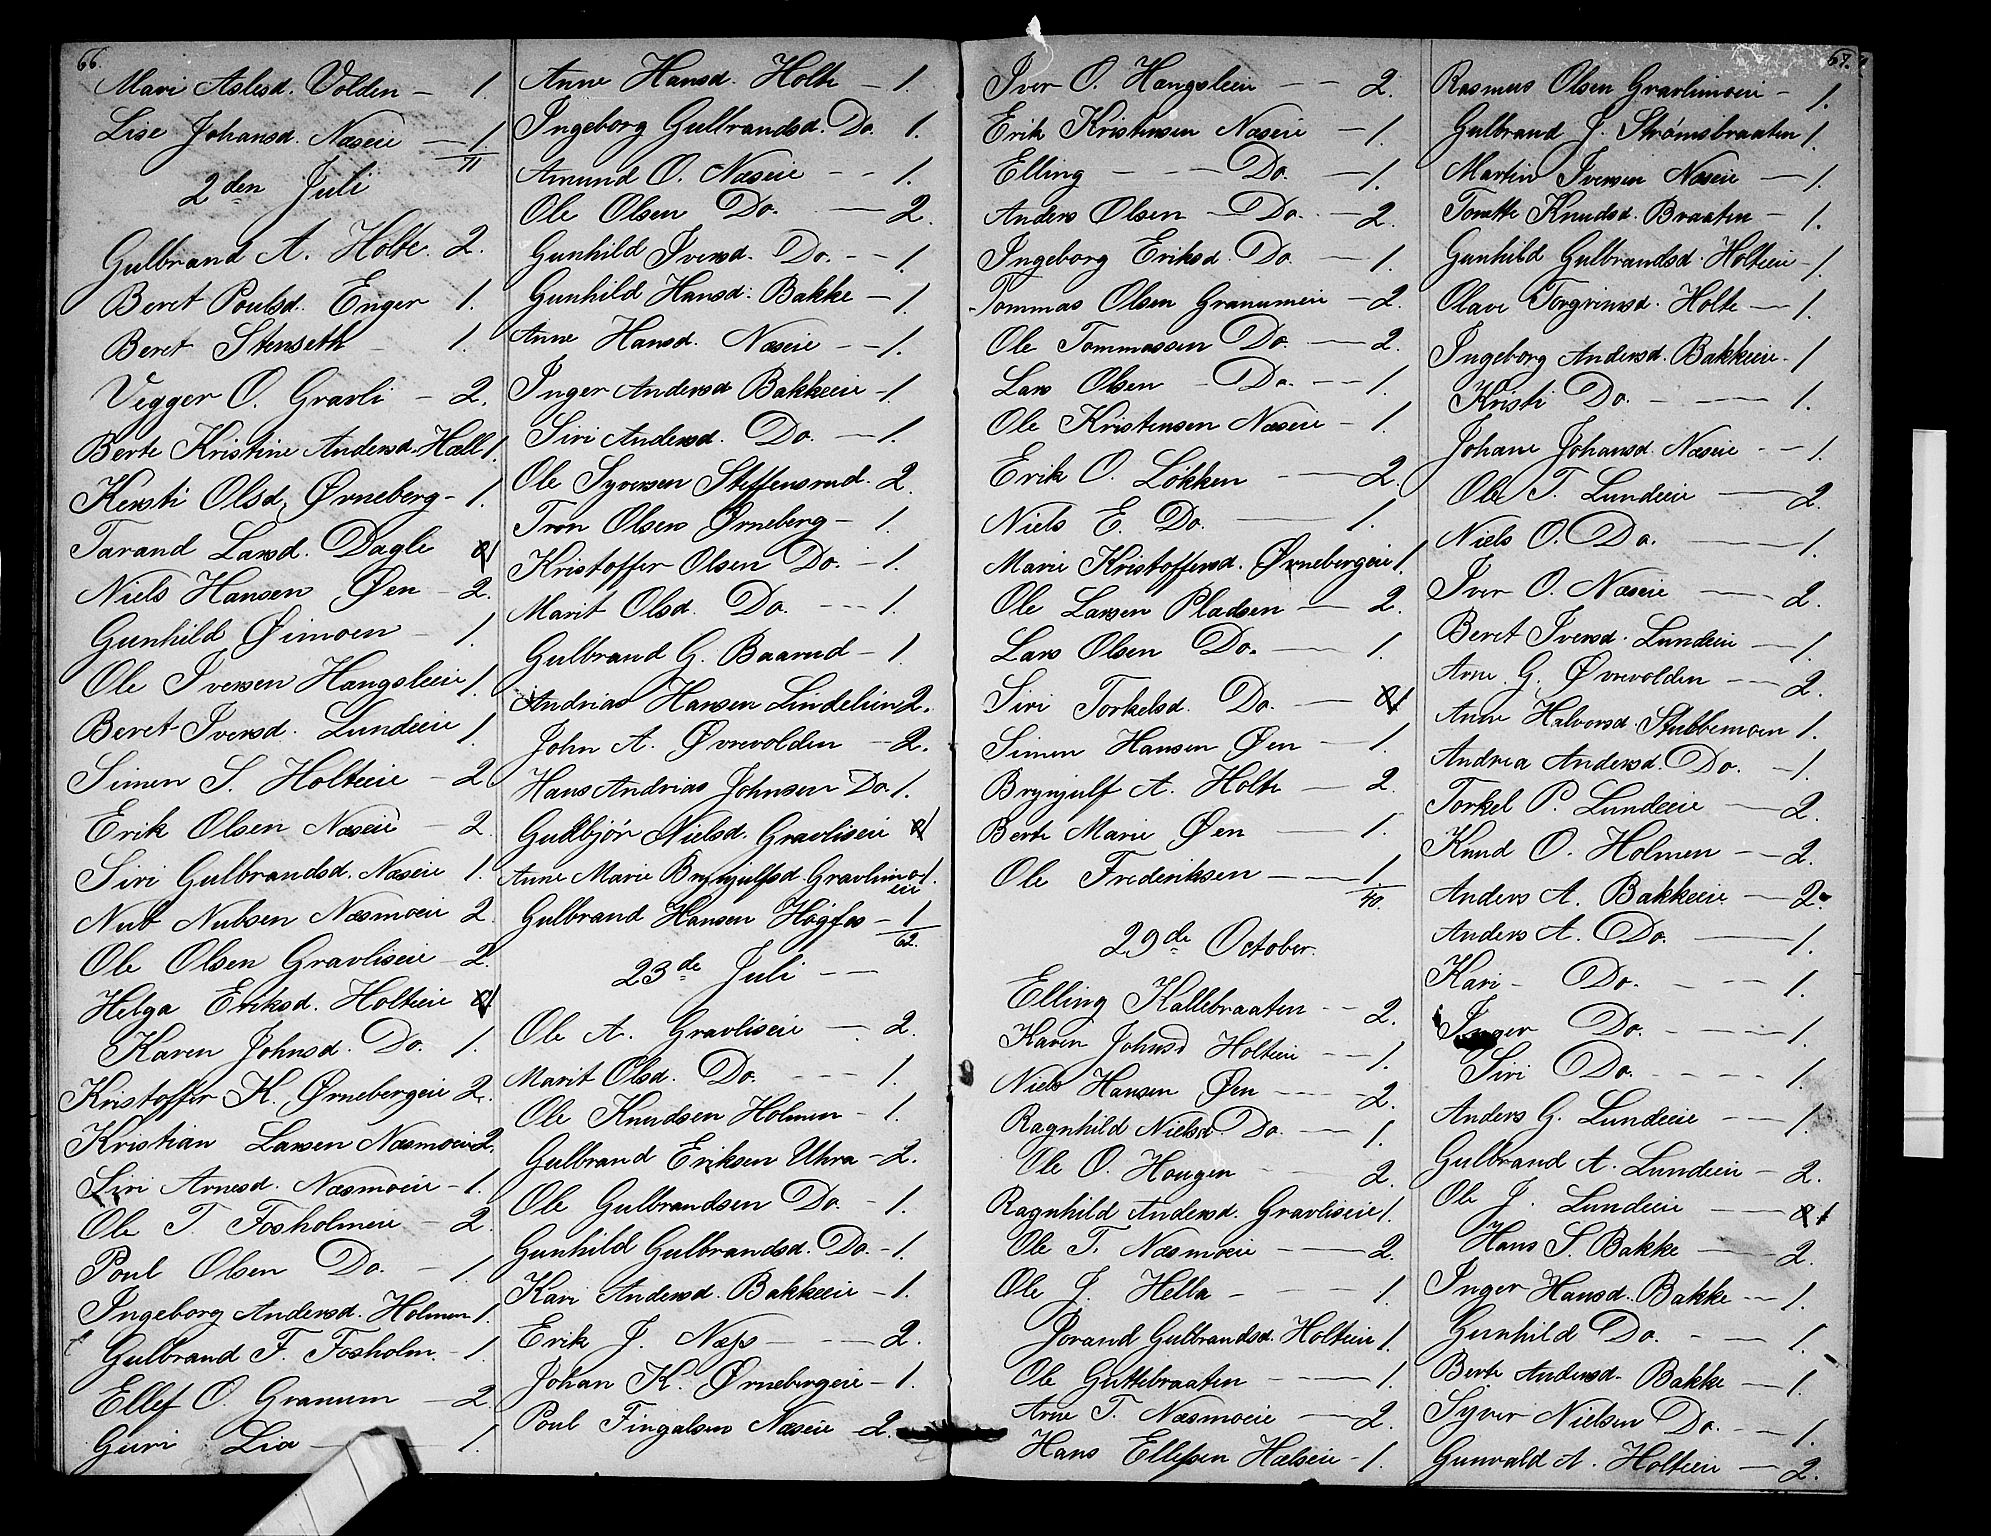 66.
Mari Aslesd. Volden — 1.
Lise Johansd. Næseie — 1.
11
2den Juli
Gulbrand A. Holte. 2.
Beret Poulsd. Enger 1.
Beret Stenseth 1.
Vegger O. Gravli — 2.
Berte Kristine Andersd. Hæll 1.
Kersti Olsd. Ørneberg — 1.
Tarand Larsd. Dagli 1
Niels Hansen Øen — 2.
Gunhild Øimoen — 1.
Ole Iversen Haugsleiie 1.
Beret Iversd. Lundeeie 1.
Simen S. Holteeie — 2.
Erik Olsen Næseie — 2.
Siri Gulbrandsd. Næseie 1.
Nub Nubsen Næsmoeie 2.
Ole Olsen Gravliseie — 2.
Helga Eriksd. Holteeie 1
Karen Johnsd. Do. 1.
Kristoffer K. Ørnebergeie 2.
Kristian Larsen Næsmoeie 2.
Siri Arnesd. Næsmoeie — 1.
Ole T. Fosholmeie — 2.
Poul Olsen Do. — 1.
Ingeborg Andersd. Holmen 1.
Gulbrand F. Fosholm. — 1.
Ellef O. Granum — 2.
Guri Lia — 1.
Anne Hansd. Holte — 1.
Ingeborg Gulbrandsd. Do. 1.
Amund O. Næseie — — 1.
Ole Olsen Do. — 2.
Gunhild Iversd. Do. — — 1.
Gunhild Hansd. Bakke — 1.
Anne Hansd. Næseie — — 1.
Inger Andersd Bakkeeie — 1.
Siri Andersd. Do. — 1.
Ole Syversen Steffensrud. 2.
Tron Olsen Ørneberg — 1.
Kristoffer Olsen Do. — 1.
Marit Olsd. Do. — — — 1.
Gulbrand G. Baarud — 1.
Andrias Hansen Lindelien 2.
John A. Øvrevolden — 2.
Hans Andrias Johnsen Do. 1.
Gudbjør Nielsd. Gravliseie 1
Anne Marie Brynjulfsd. Gravlimoeie 1.
Gulbrand Hansen Høgfos — 1
62.
23de Juli — —
Ole A. Gravliseie — 2.
Marit Olsd. Do. — — — 1.
Ole Knudsen Holmen — 1.
Gulbrand Eriksen Uhra — 2.
Ole Gulbrandsen Do. — 1.
Gunhild Gulbrandsd. Do. — 1.
Kari Andersd. Bakkeeie — 1.
Erik J. Næss — — 2.
Johan K. Ørnebergeie — 1.
Poul Fingalsen Næseie — 2.
67.
Iver O. Haugsleiie — — 2.
Erik Kristensen Næseie — 1.
Elling — — — Do. — 1.
Anders Olsen — Do. — 2.
Ingeborg Eriksd. Do. — 1.
Tommas Olsen Granumeie — 2.
Ole Tommassen Do. — 2.
Lars Olsen — Do. — — 1.
Ole Kristensen Næseie — 1.
Erik O. Løkken — 2.
Niels E. Do. — 1.
Marie Kristoffersd. Ørnebergeie 1.
Ole Larsen Pladsen — 2.
Lars Olsen Do. — 1.
Siri Torkelsd. Do. — 1
Simen Hansen Øen — 1.
Brynjulf A. Holte — 2.
Berte Marie Øen — 1.
Ole Frederiksen — — 1
40.
29de October.
Elling Kallebraaten — — 2.
Karen Johnsd Holteeie — — 1.
Niels Hansen Øen — — — 2.
Ragnhild Nielsd. Do. — 1.
Ole O. Haugen 2.
Ragnhild Andersd. Gravliseie 1.
Ole T. Næsmoeie — — 2.
Ole J. Hella — — — 1.
Jorand Gulbrandsd. Holteeie 1.
Ole Guttebraaten — — 1.
Arne T. Næsmoeie — — 2.
Hans Ellefsen Hælseie — 1.
Rasmus Olsen Gravlimoen — 1.
Gulbrand J. Strømsbraaten 1.
Martin Iversen Næseie — 1.
Torette Knudsd. Braaten — 1.
Gunhild Gulbrandsd. Holteeie — 1.
Olave Torgrimsd. Holte — 1.
Ingeborg Andersd. Bakkeeie. 1
Kristi Do. — — 1.
Johane Johansd. Næseie — — 1.
Ole T. Lundeeie — 2.
Niels O. Do. — 1.
Iver O. Næseie — 2.
Beret Iversd. Lundeeie — 1.
Arne G. Øvrevolden — 2.
Anne Halvorsd. Stubbemoen 1.
Andrea Andersd. Do. — 1.
Torkel P. Lundeeie — 2.
Knud O. Holmen — — 2.
Anders A. Bakkeeie — 2.
Anders A. Do. — 1.
Kari — Do. — — — 1.
Inger Do. — — — 1.
Siri Do. — — — — 1.
Anders G. Lundeeie — — 1.
Gulbrand A. Lundeeie — 2.
Ole J. Lundeeie — 1
Hans S. Bakke — 2.
Inger Hansd. Bakke — — 1.
Gunhild Do. — — 1.
Berte Andersd. Bakke — 1.
Syver Nielsen Do. — — 1.
Gunvald A. Holteeie — 2.